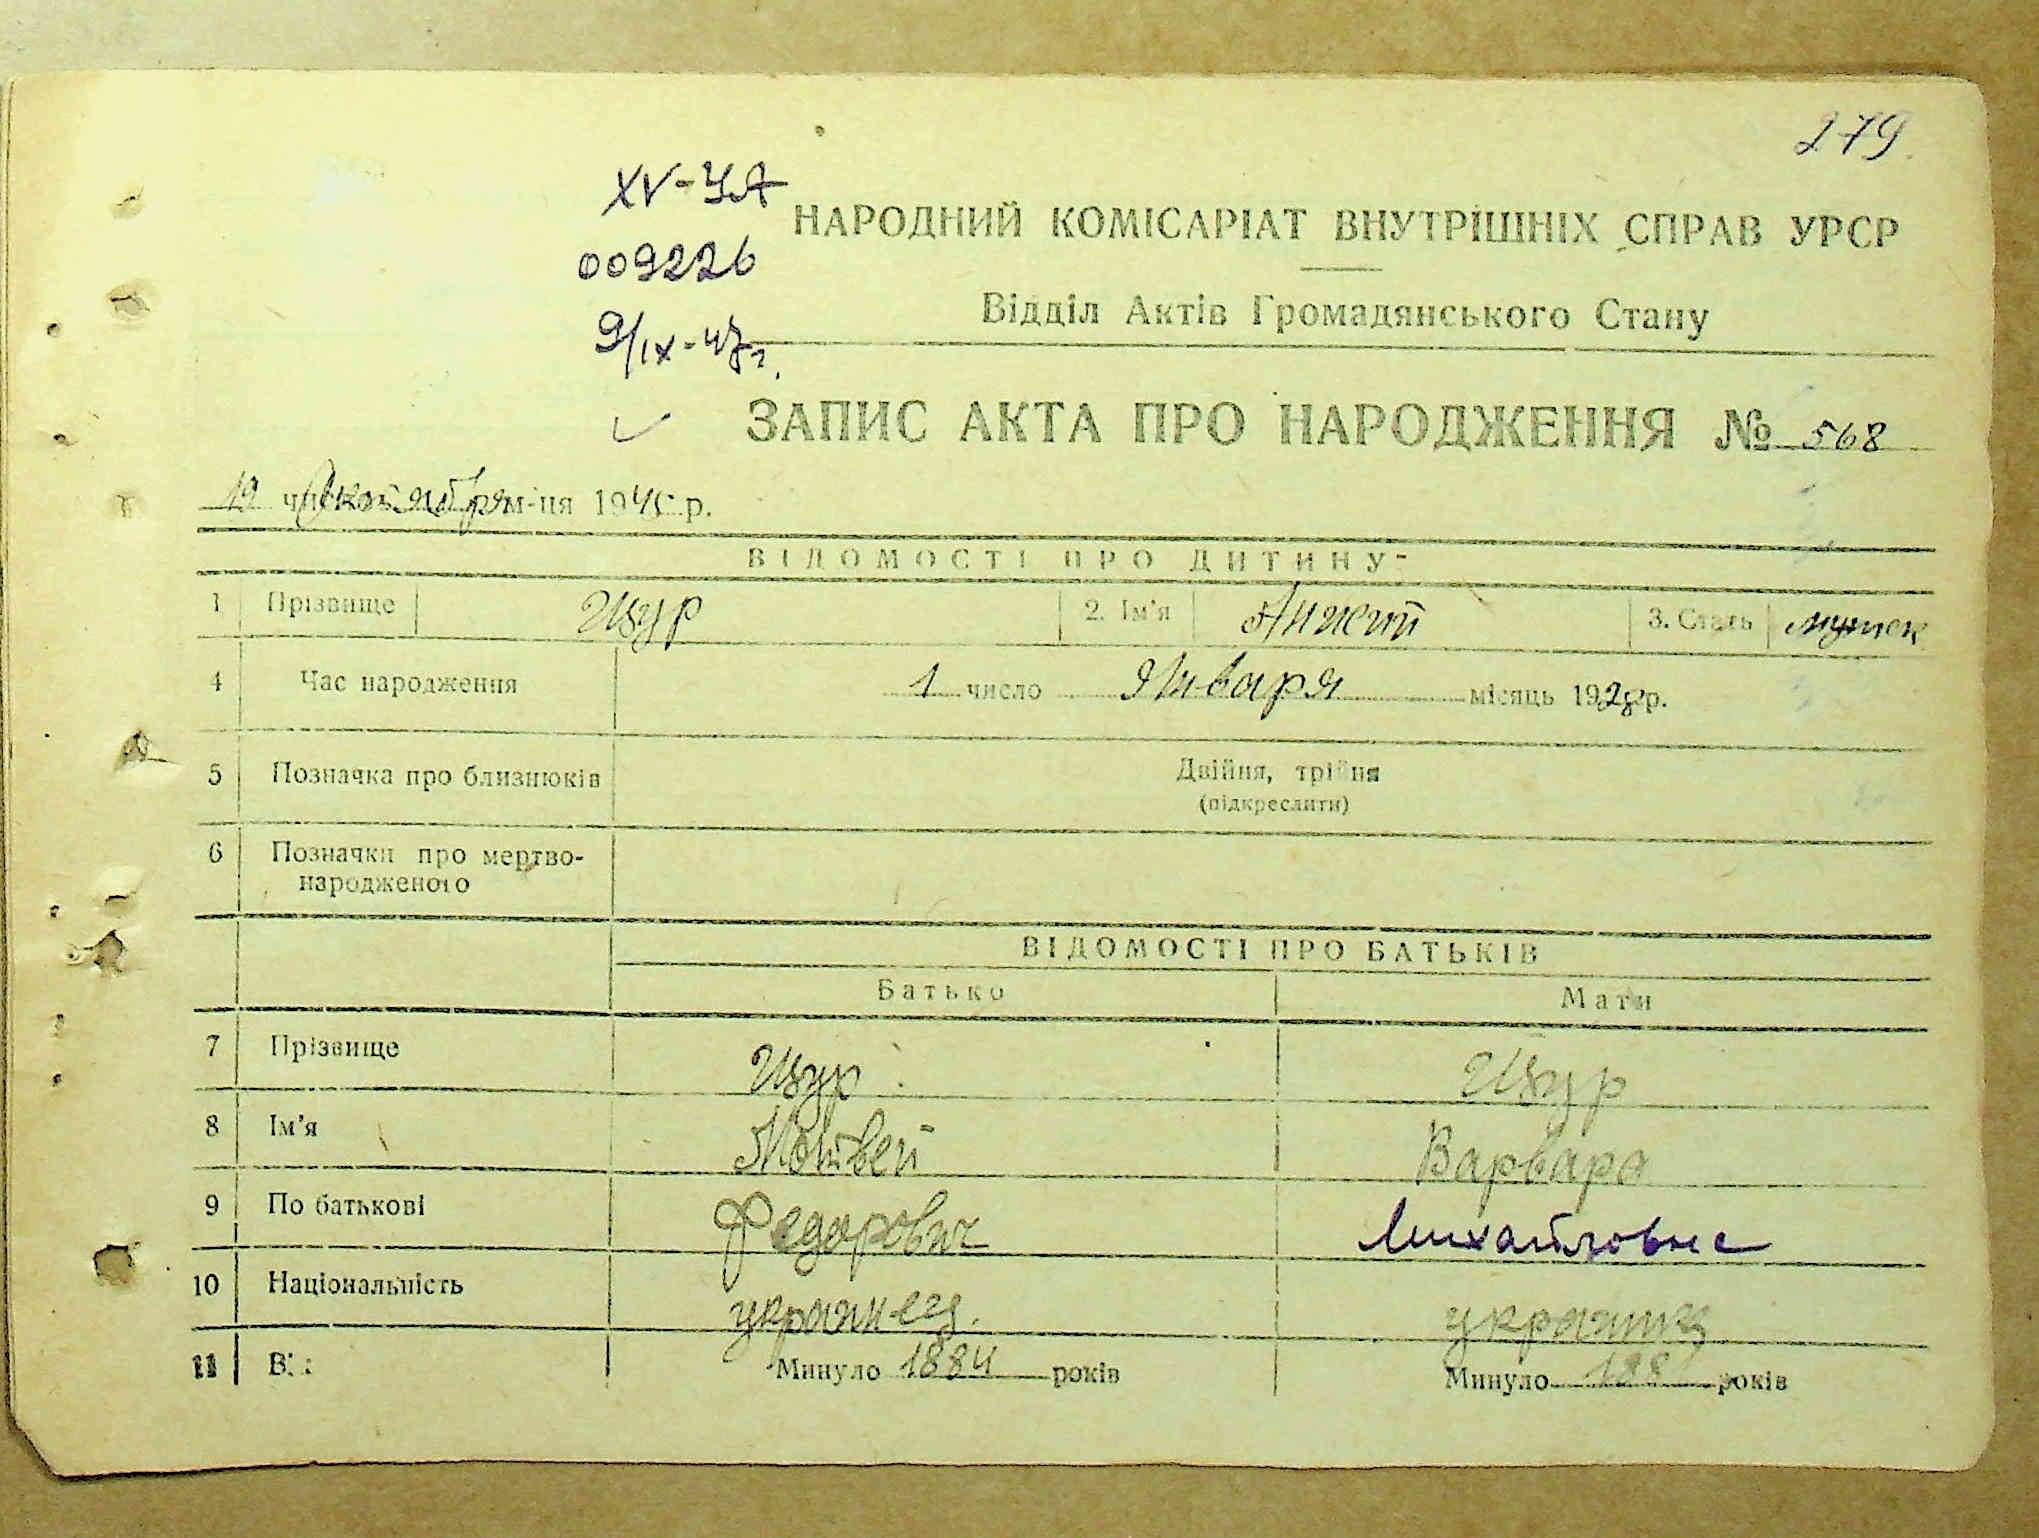 279
XV-УА
НАРОДНИЙ КОМІСАРІАТ ВНУТРІШНІХ СПРАВ УРСР
009226
Відділ Актів Громадянського Стану
9/IX-47г.
ЗАПИС АКТА ПРО НАРОДЖЕННЯ № 568
19 Октября м-ця 1945 р.
ВІДОМОСТІ ПРО ДИТИНУ
1 Прізвище Щур 2. Ім'я 3. Стать мужск
4 Час народження 1 число Января місяць 1928 р.
5 Позначка про близнюків Двійня, трійня
(підкреслити)
6 Позначки про мертво-
народженого
ВІДОМОСТІ ПРО БАТЬКІВ
Батько Мати
7 Прізвище Щур Щур
8 Ім'я Матвей Варвара
9 По батькові Федорович Михайловна
10 Національність украинец. украинц
11 Минуло 1884 років Минуло 188 років